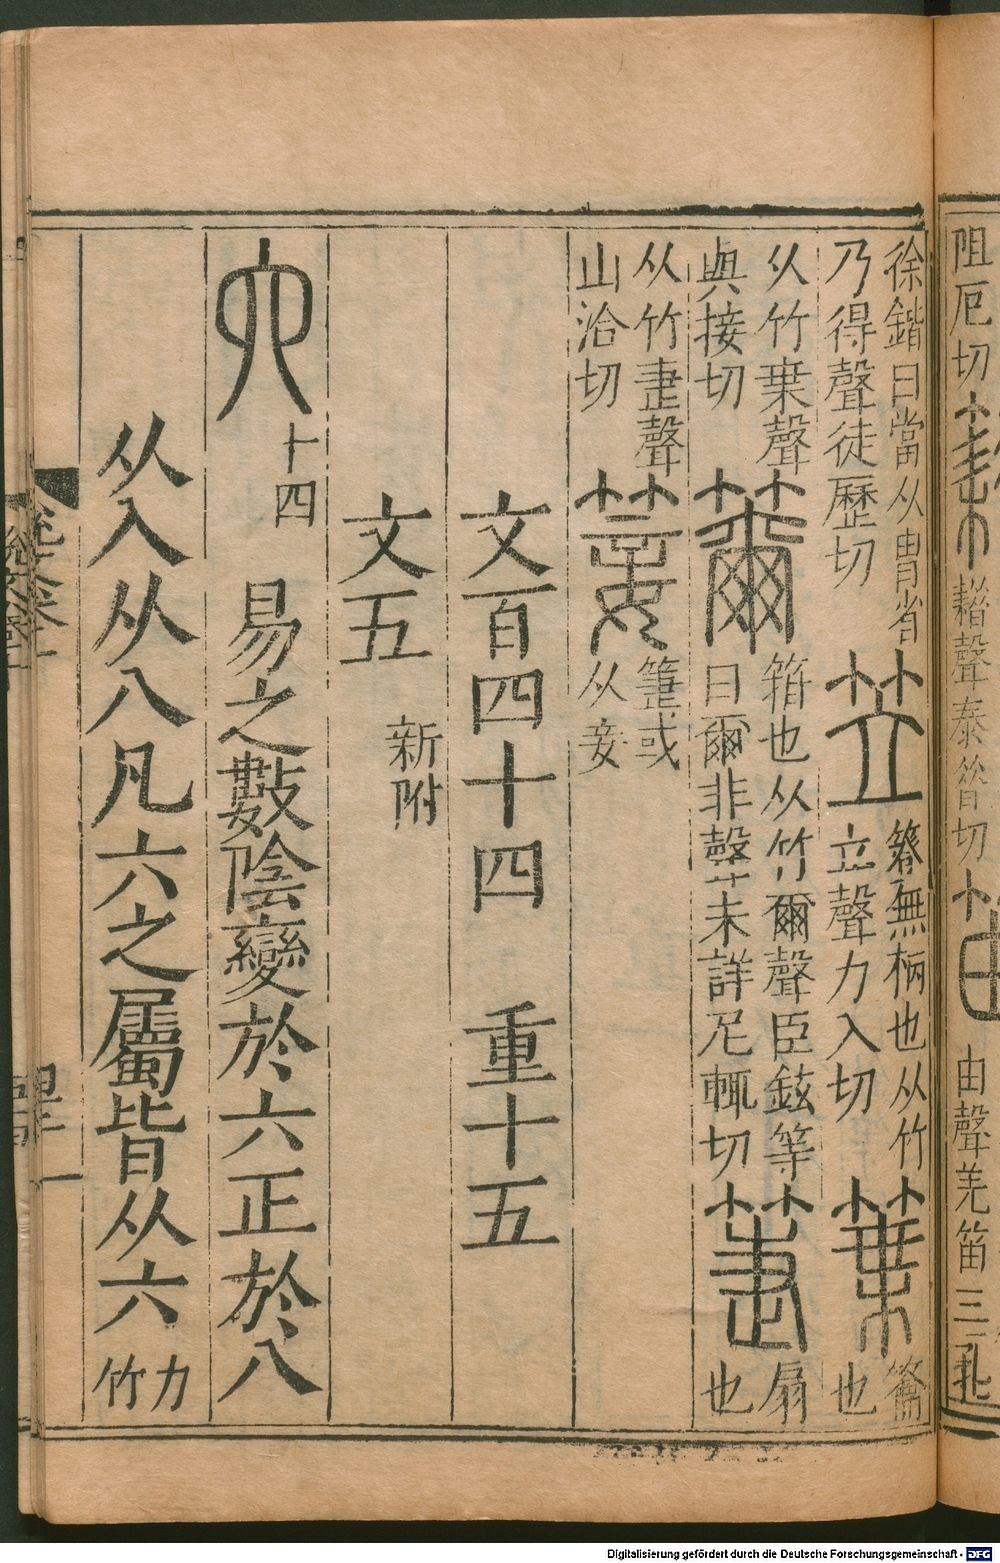 阻厄切
耤聲
切
由聲羌笛三孔
徐鍇曰當从胄省
乃得聲徒歷切
笠
簦無柄也从竹
立聲力入切
䈎
籥
也
从竹枼聲
與接切
籋
箝也从竹爾聲臣鉉等
曰爾非聲未詳尼輒切
箑
扇
也
从竹疌聲
山洽切
䈉
箑或
从妾
文百四十四 重十五
文五 新附
六 十四 易之數陰變於六正於八
从入从八凡六之屬皆从六 力竹
Digitalisierung gefördert durch die Deutsche Forschungsgemeinschaft - DFG